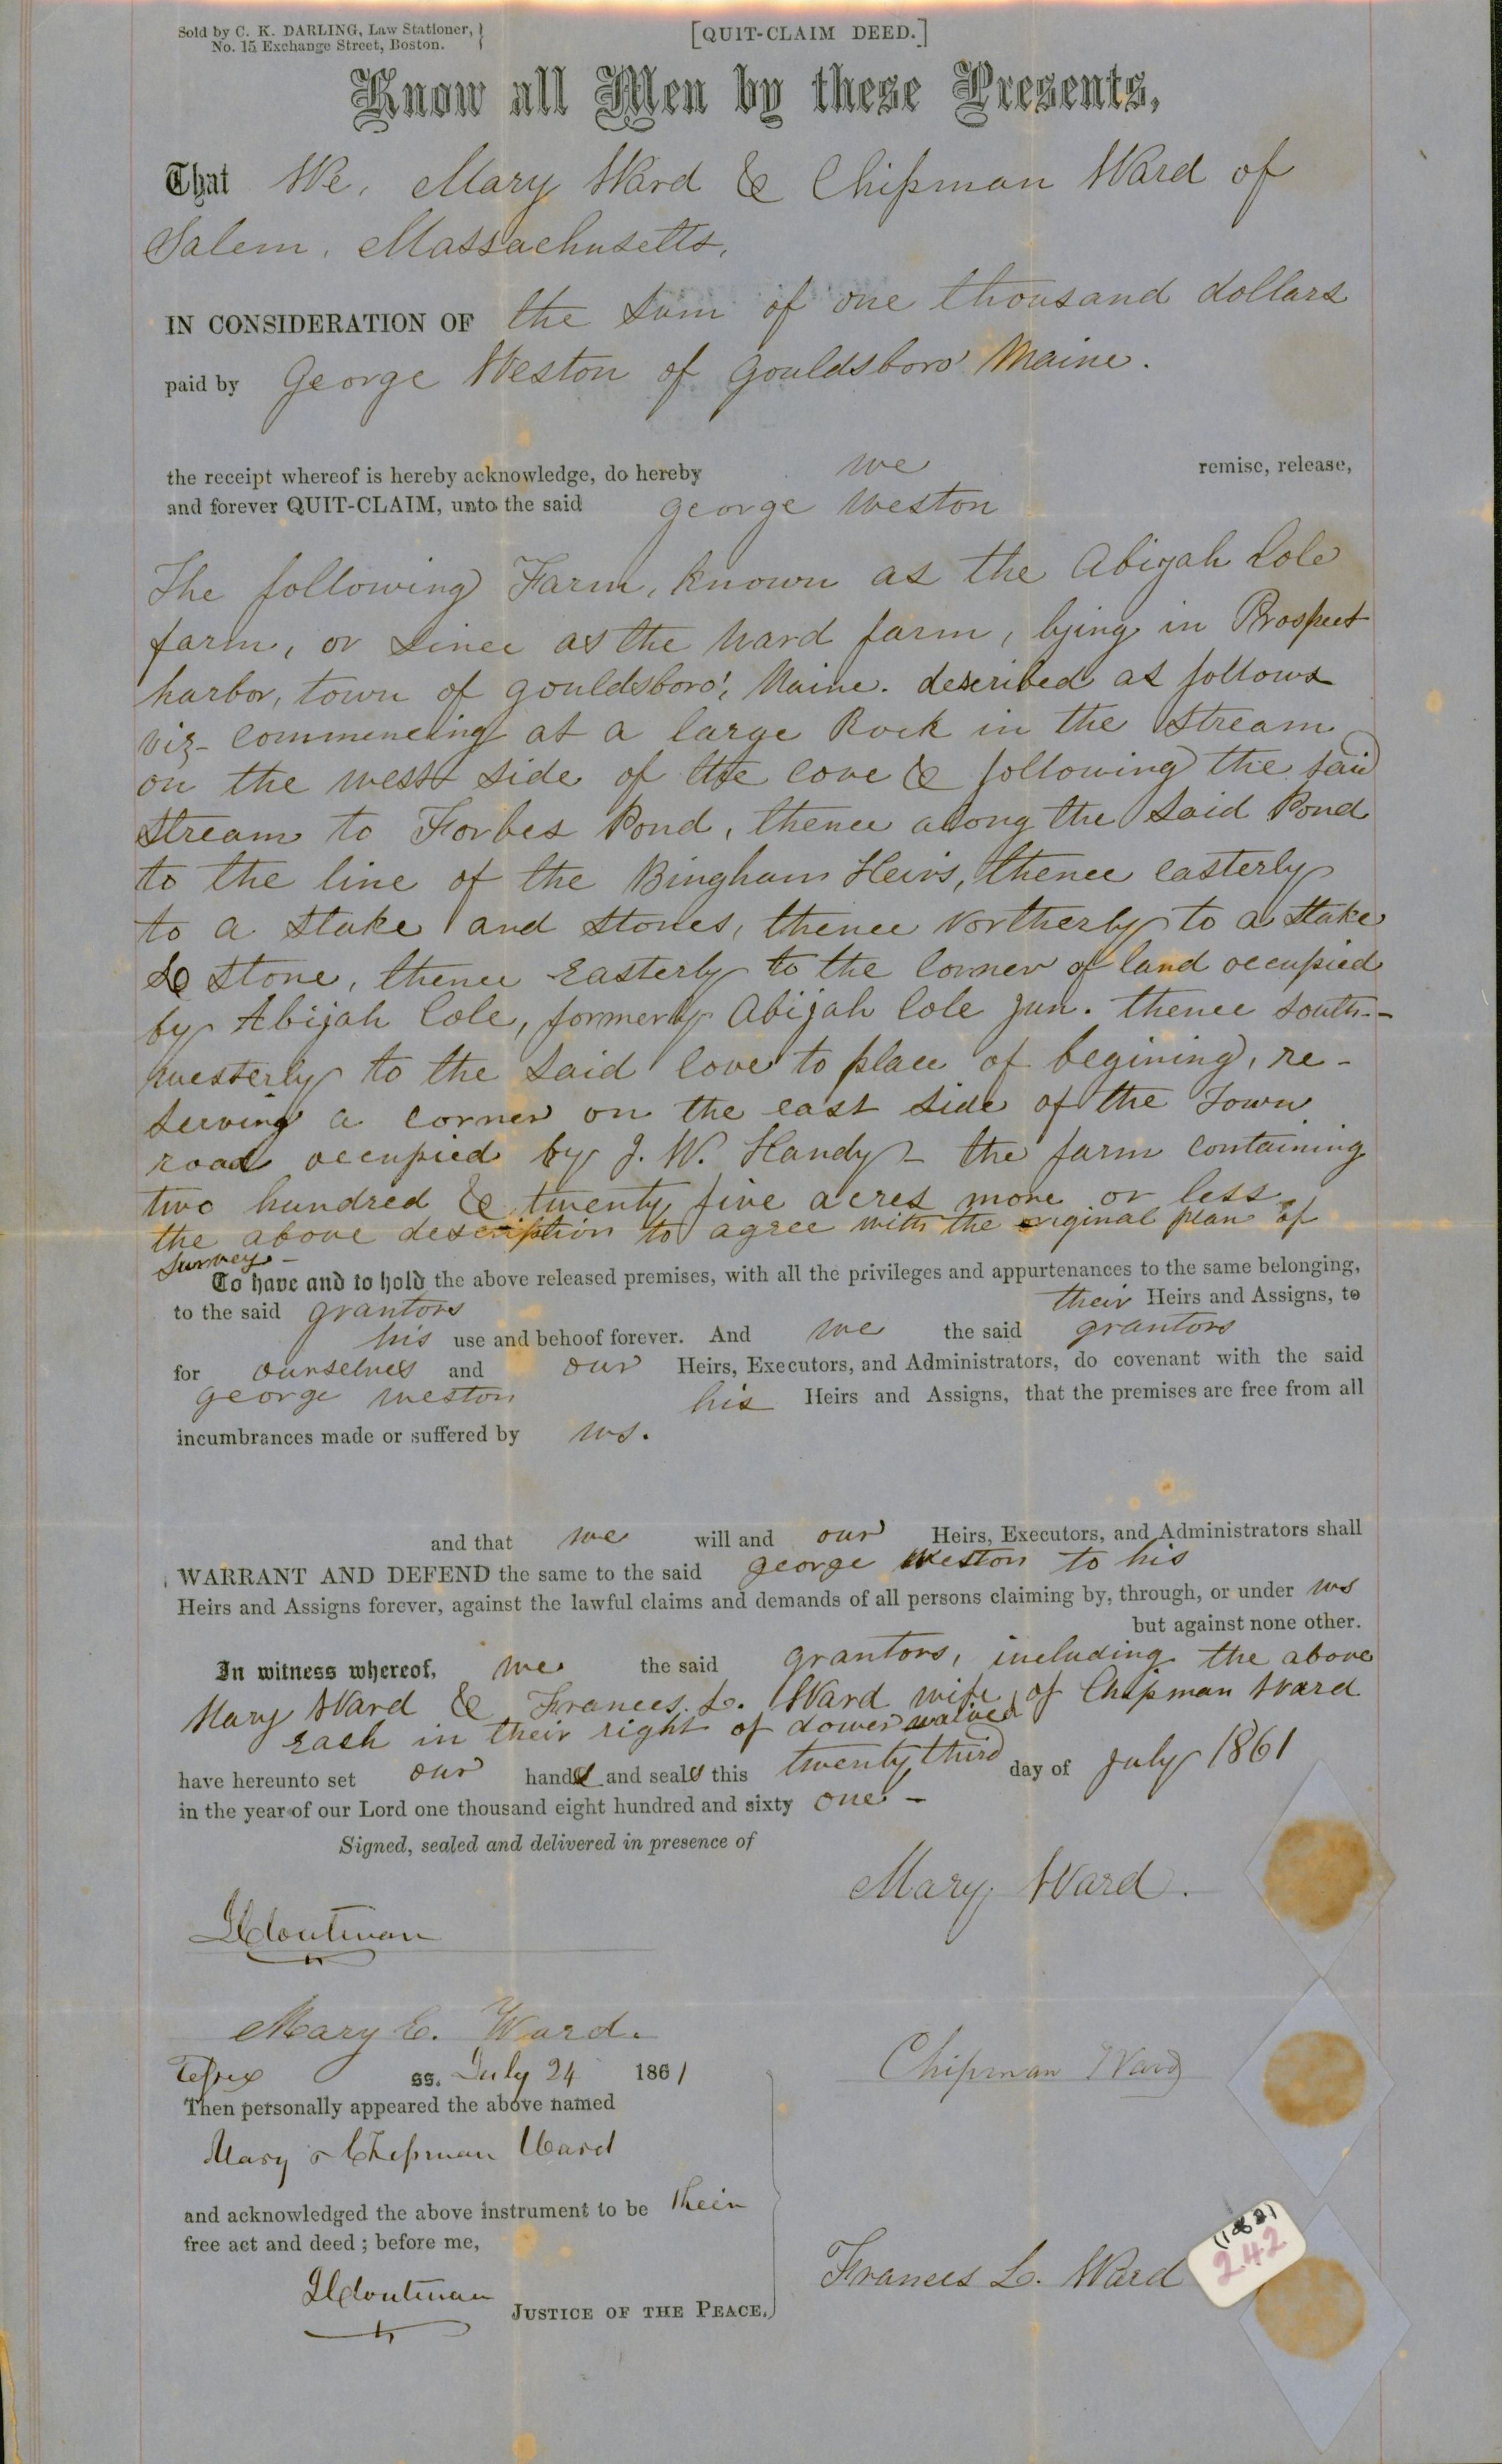 Sold by C. K. DARLING, Law Stationer,
No. 15 Exchange Street, Boston.
[QUIT-CLAIM DEED.]
Know all Men by these Presents,
That We, Mary Ward & Chipman Ward of
Salem, Massachusetts,
IN CONSIDERATION OF the sum of one thousand dollars
paid by George Weston of Gouldsboro' Maine.
the receipt whereof is hereby acknowledge, do hereby we remise, release,
and forever QUIT-CLAIM, unto the said george Weston
The following Farm, known as the Abijah Cole
farm, or since as the Ward farm, lying in Prospect
harbor, town of gouldsboro', Maine. described as follows
viz- commencing at a large Rock in the Stream
on the west side of the cove & following the said
stream to Forbes Pond, thence along the said Pond
to the line of the Bingham Heirs, thence easterly
to a stake and stones, thence Northerly to a stake
& stone, thence Easterly to the corner of land occupied
by Abijah Cole, formerly Abijah Cole jun. thence south-
westerly to the said Cove to place of begining, re-
serving a corner on the east side of the Town
road occupied by J. W. Handy - the farm containing
two hundred & twenty five acres more or less
the above description to agree with the original plan of
survey -
To have and to hold the above released premises, with all the privileges and appurtenances to the same belonging,
to the said grantors their Heirs and Assigns, to
his use and behoof forever. And we the said grantors
for ourselves and our Heirs, Executors, and Administrators, do covenant with the said
george Weston his Heirs and Assigns, that the premises are free from all
incumbrances made or suffered by us.
and that we will and our Heirs, Executors, and Administrators shall
WARRANT AND DEFEND the same to the said george Weston to his
Heirs and Assigns forever, against the lawful claims and demands of all persons claiming by, through, or under us
but against none other.
In witness whereof, we the said grantors, including the above
Mary Ward & Frances. L. Ward wife of Chipman Ward
Each in their right of dower waived
have hereunto set our hands and seals this twenty third day of July 1861
in the year of our Lord one thousand eight hundred and sixty one -
Signed, sealed and delivered in presence of
Mary Ward.
Mary E. Ward.
Essex ss. July 24 1861
Chipman Ward
Then personally appeared the above named
Mary & Chipman Ward
and acknowledged the above instrument to be their
free act and deed; before me,
Frances L. Ward
242
JUSTICE OF THE PEACE.